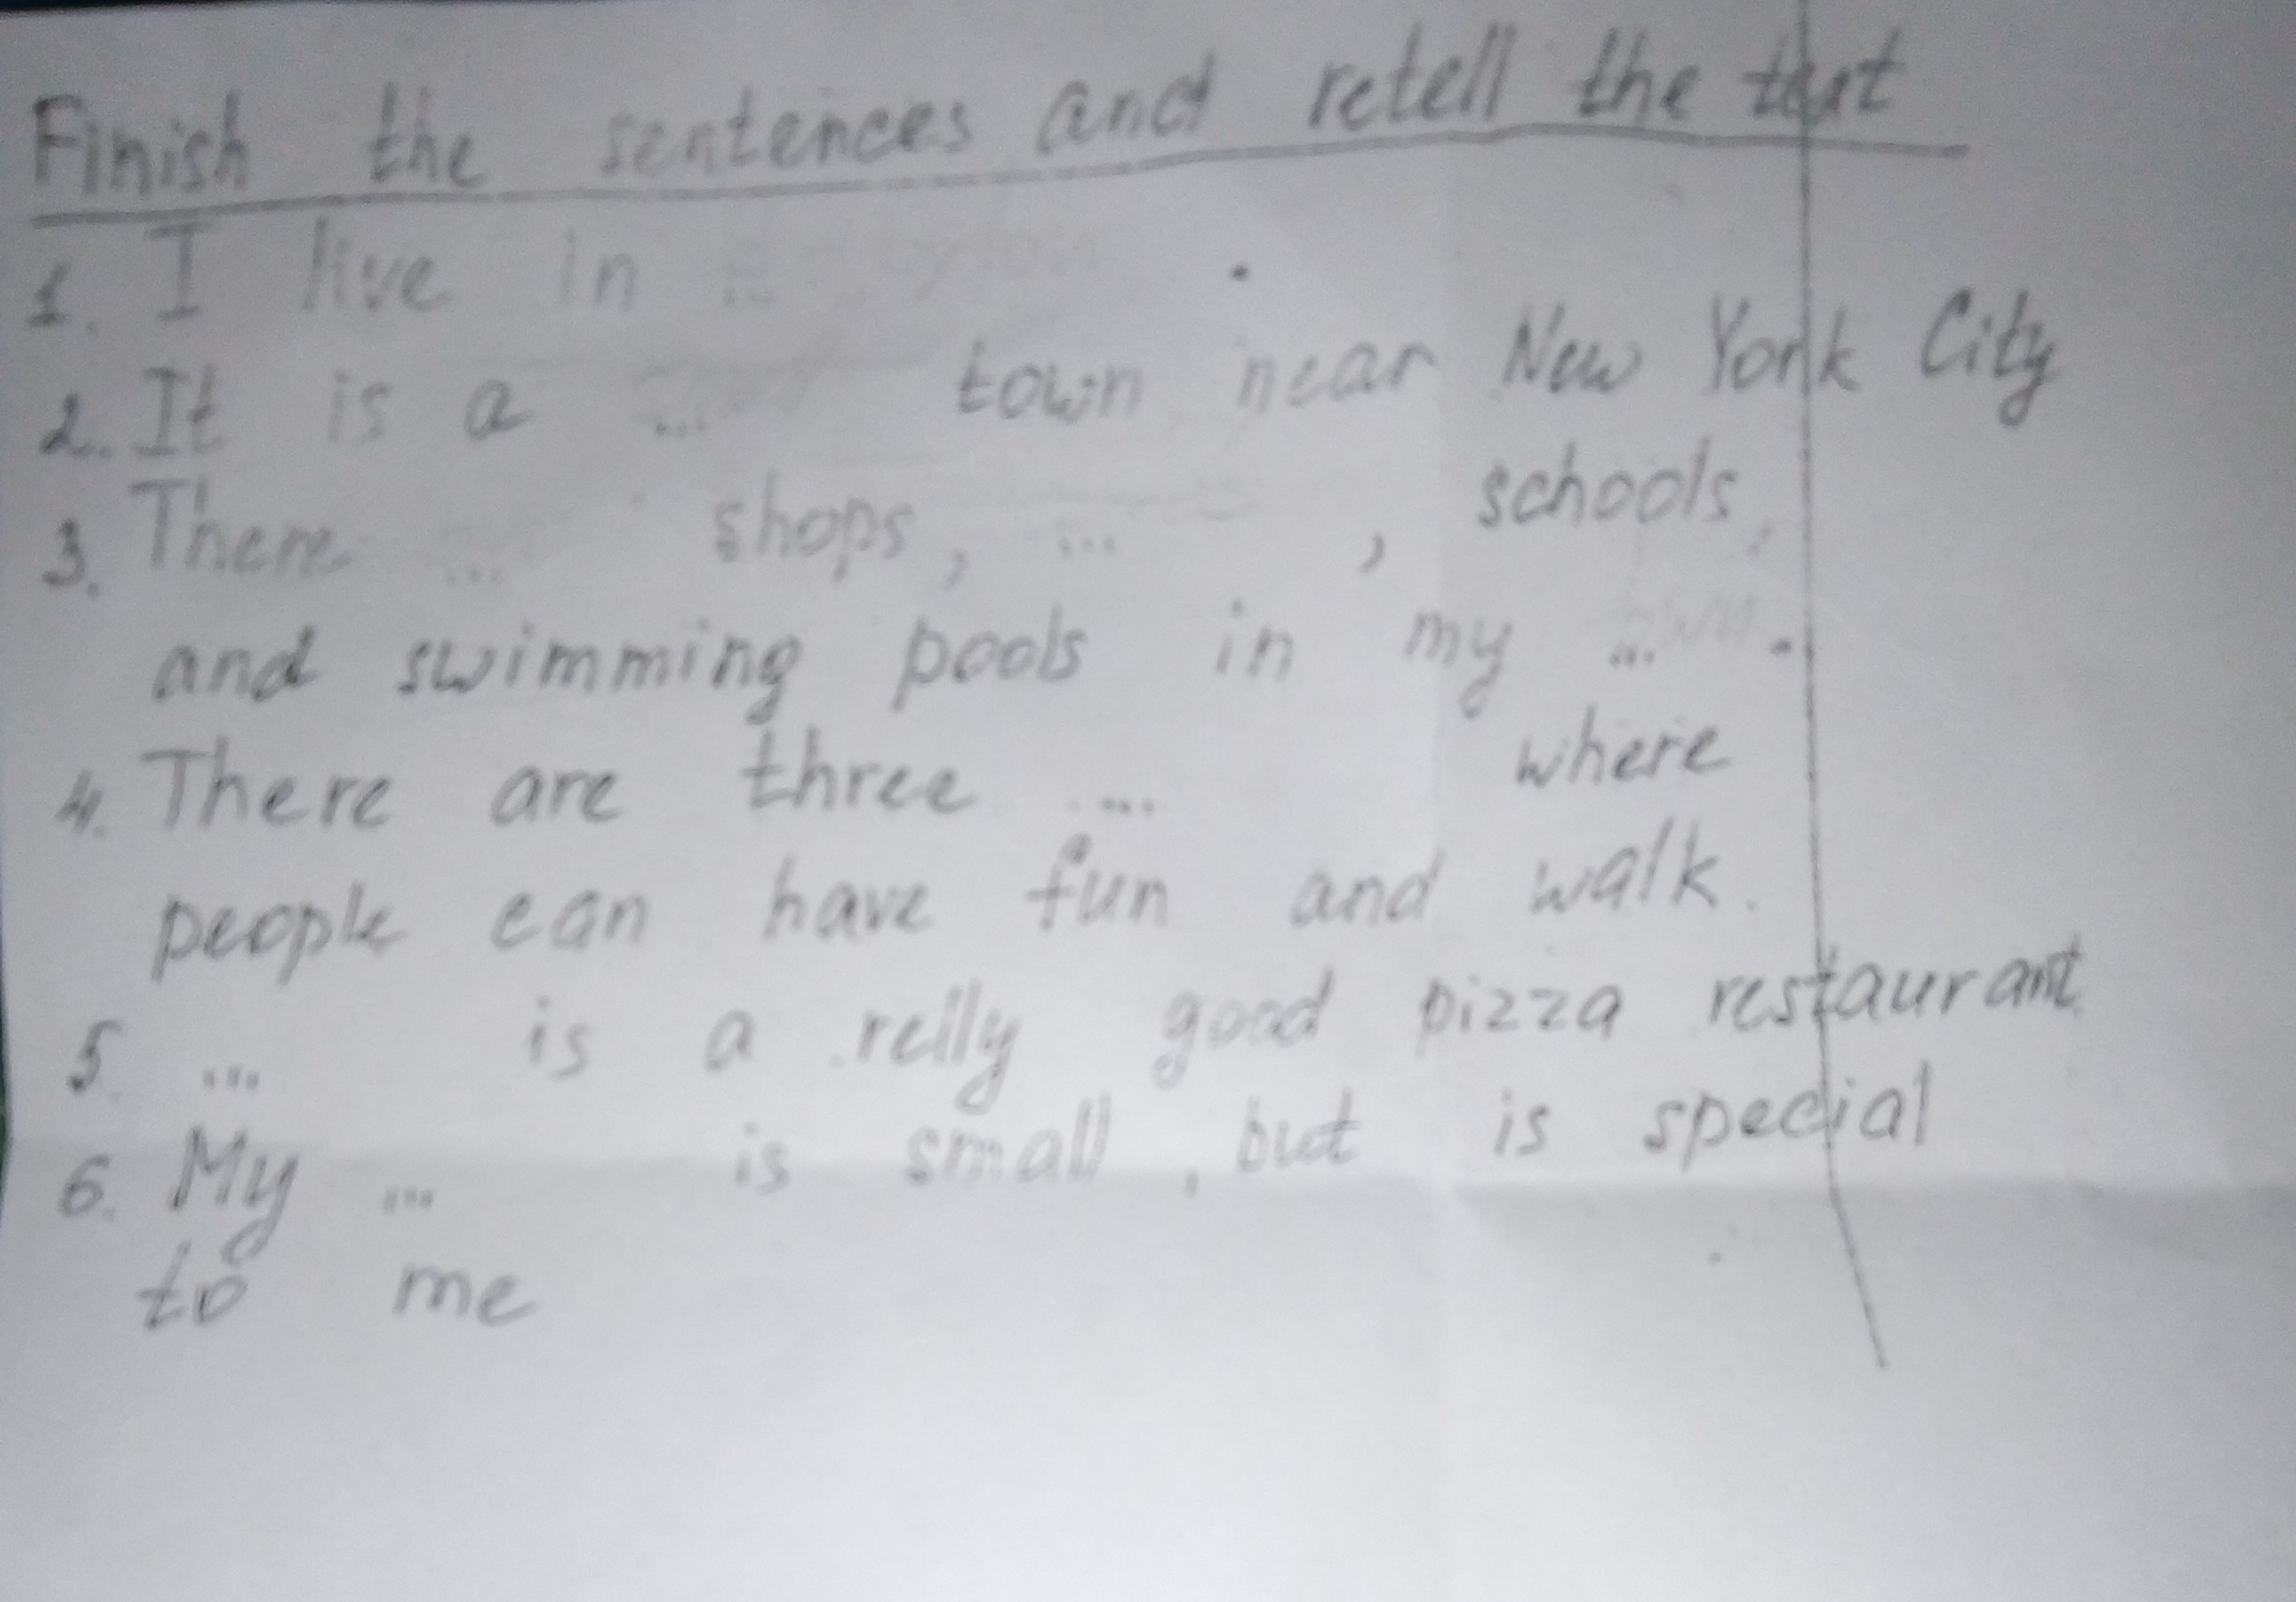 Finish the sentences and retell the text
1. I live in ... .
2. It is a ... town near New York City
3. There ... shops, ... , schools,
and swimming pools in my ... .
4. There are three ... where
people can have fun and walk.
5. ... is a relly good pizza restaurant
6. My ... is small, but is special
to me